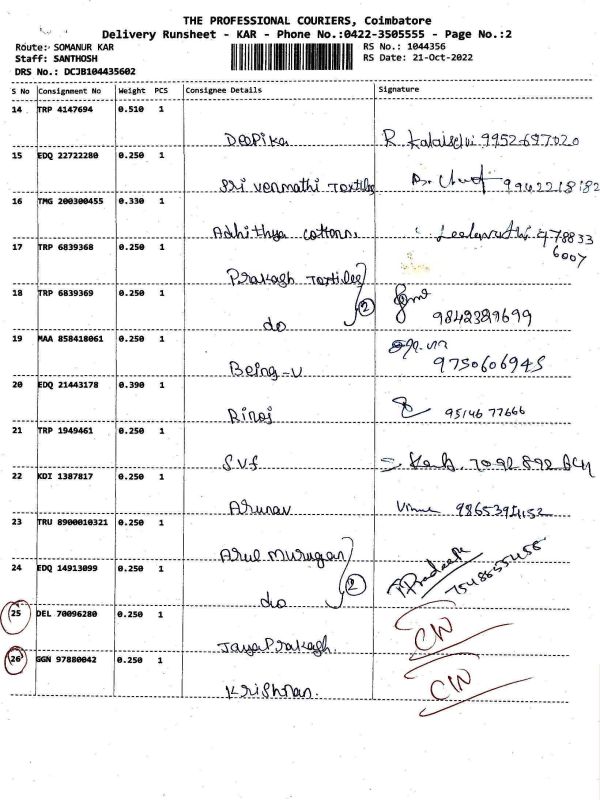 THE PROFESSIONAL COURIERS, Coimbatore
Delivery Runsheet - KAR - Phone No.:0422-3505555 - Page No.:2
Route: SOMANUR KAR RS No.: 1044356
Staff: SANTHOSH RS Date: 21-Oct-2022
DRS No.: DCJB104435602
S No Consignment No Weight PCS Consignee Details Signature
14 TRP 4147694 0.510 1
Deepika R. Kalaiselvi 9952697020
15 EDQ 22722280 0.250 1
Sri Venmathi Textiles 9942218182
16 TMG 200300455 0.330 1
Adhithya cottons.
17 TRP 6839368 0.250 1
Prakash Textiles
18 TRP 6839369 0.250 1
do 2 9842389699
19 MAA 858418061 0.250 1
Being-U 9750606945
20 EDQ 21443178 0.390 1
Rinoj 9514677666
21 TRP 1949461 0.250 1
SVF
22 KDI 1387817 0.250 1
Arunav
23 TRU 8900010321 0.250 1
Arul Murugan
24 EDQ 14913099 0.250 1
do 2 Pradeep 7548855458
25 DEL 70096280 0.250 1
JayaPrakash. CN
26 GGN 97880042 0.250 1
Krishnan. CN